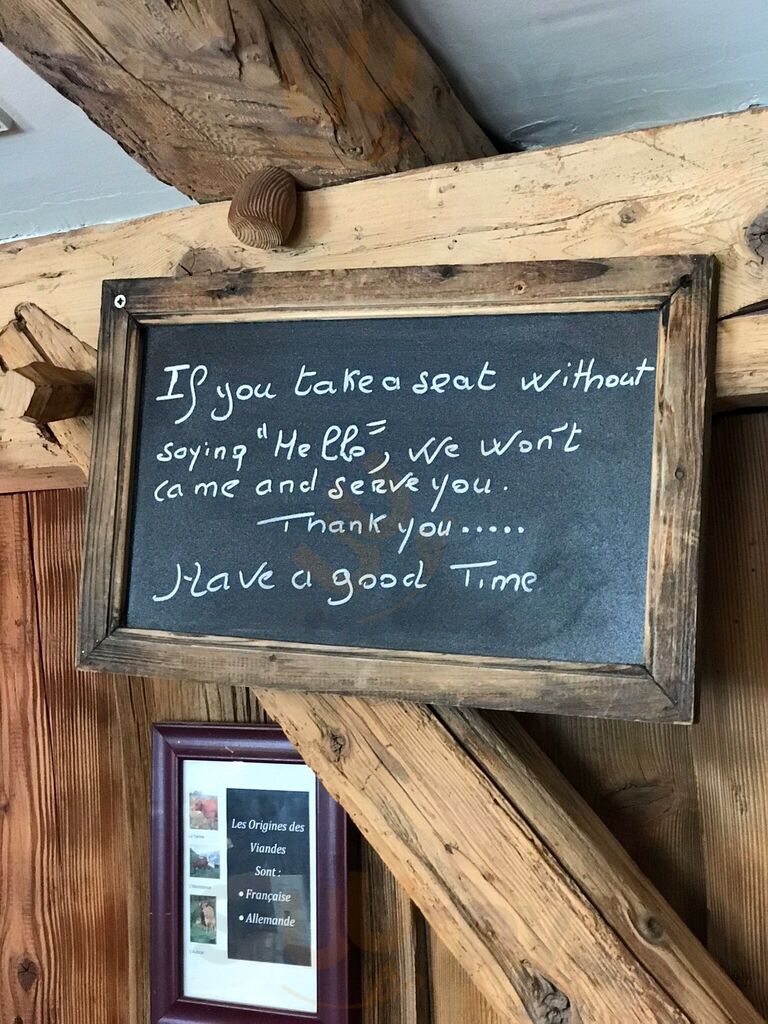 If you take a seat without
saying "Hello", we won't
came and serve you.
Thank you.....
Have a good Time
Les Origines des
Viandes
Sont :
• Française
• Allemande